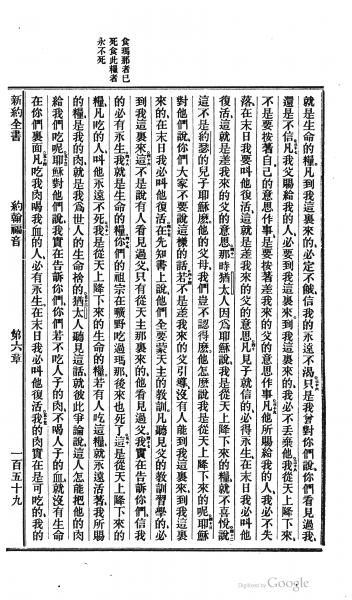 食瑪那者已
死食此糧者
永不死
就是生命的糧、凡到我這裏來的、必定不餓、信我的、永遠不渴、只是我曾對你們說、你們看見過我、
還是不信、凡我父賜給我的人、必要到我這裏來、到我這裏來的、我必不丟棄他、我從天上降下來、
不是要按著自己的意思作事、是要按著差我來的父的意思作事、凡他所賜給我的人、我必不失
落、在末日我要叫他復活、這就是差我來的父的意思、凡見子就信的、必得永生、在末日我必叫他
復活、這就是差我來的父的意思、那時猶太人、因爲耶穌說、我是從天上降下來的糧、就不喜悅、說
這不是約瑟的兒子耶穌麽、他的父母我們豈不認得麽、他怎麽說我是從天上降下來的呢、耶穌
對他們說、你們大家不要說這樣的話、若不是差我來的父引導、沒有人能到我這裏
來的、在末日我必叫他復活、在先知書上說、他們全要蒙天主的教訓、凡聽見父的教訓學習的、必
到我這裏來、不是說有人看見過父、只有從天主那裏來的、他看見過父、我實在告訴你們、信我
的必有永生、我就是生命的糧、你們的祖宗在曠野吃過瑪那、後來也死了、這是從天上降下來的
糧、凡吃的人、叫他永遠不死、我是從天上降下來的生命的糧、若有人吃這糧、就永遠活著、我所賜
的糧是我的肉、就是我爲世人的生命捨的、猶太人聽見這話、就彼此爭論說、這人怎能把他的肉
給我們吃呢、耶穌對他們說、我實在告訴你們、你們若不吃人子的肉、不喝人子的血、就沒有生命
在你們裏面、凡吃我肉喝我血的人、必有永生、在末日我必叫他復活、我的肉實在是可吃的、我的
新約全書 約翰福音 第六章 一百五十九
Digitized by Google